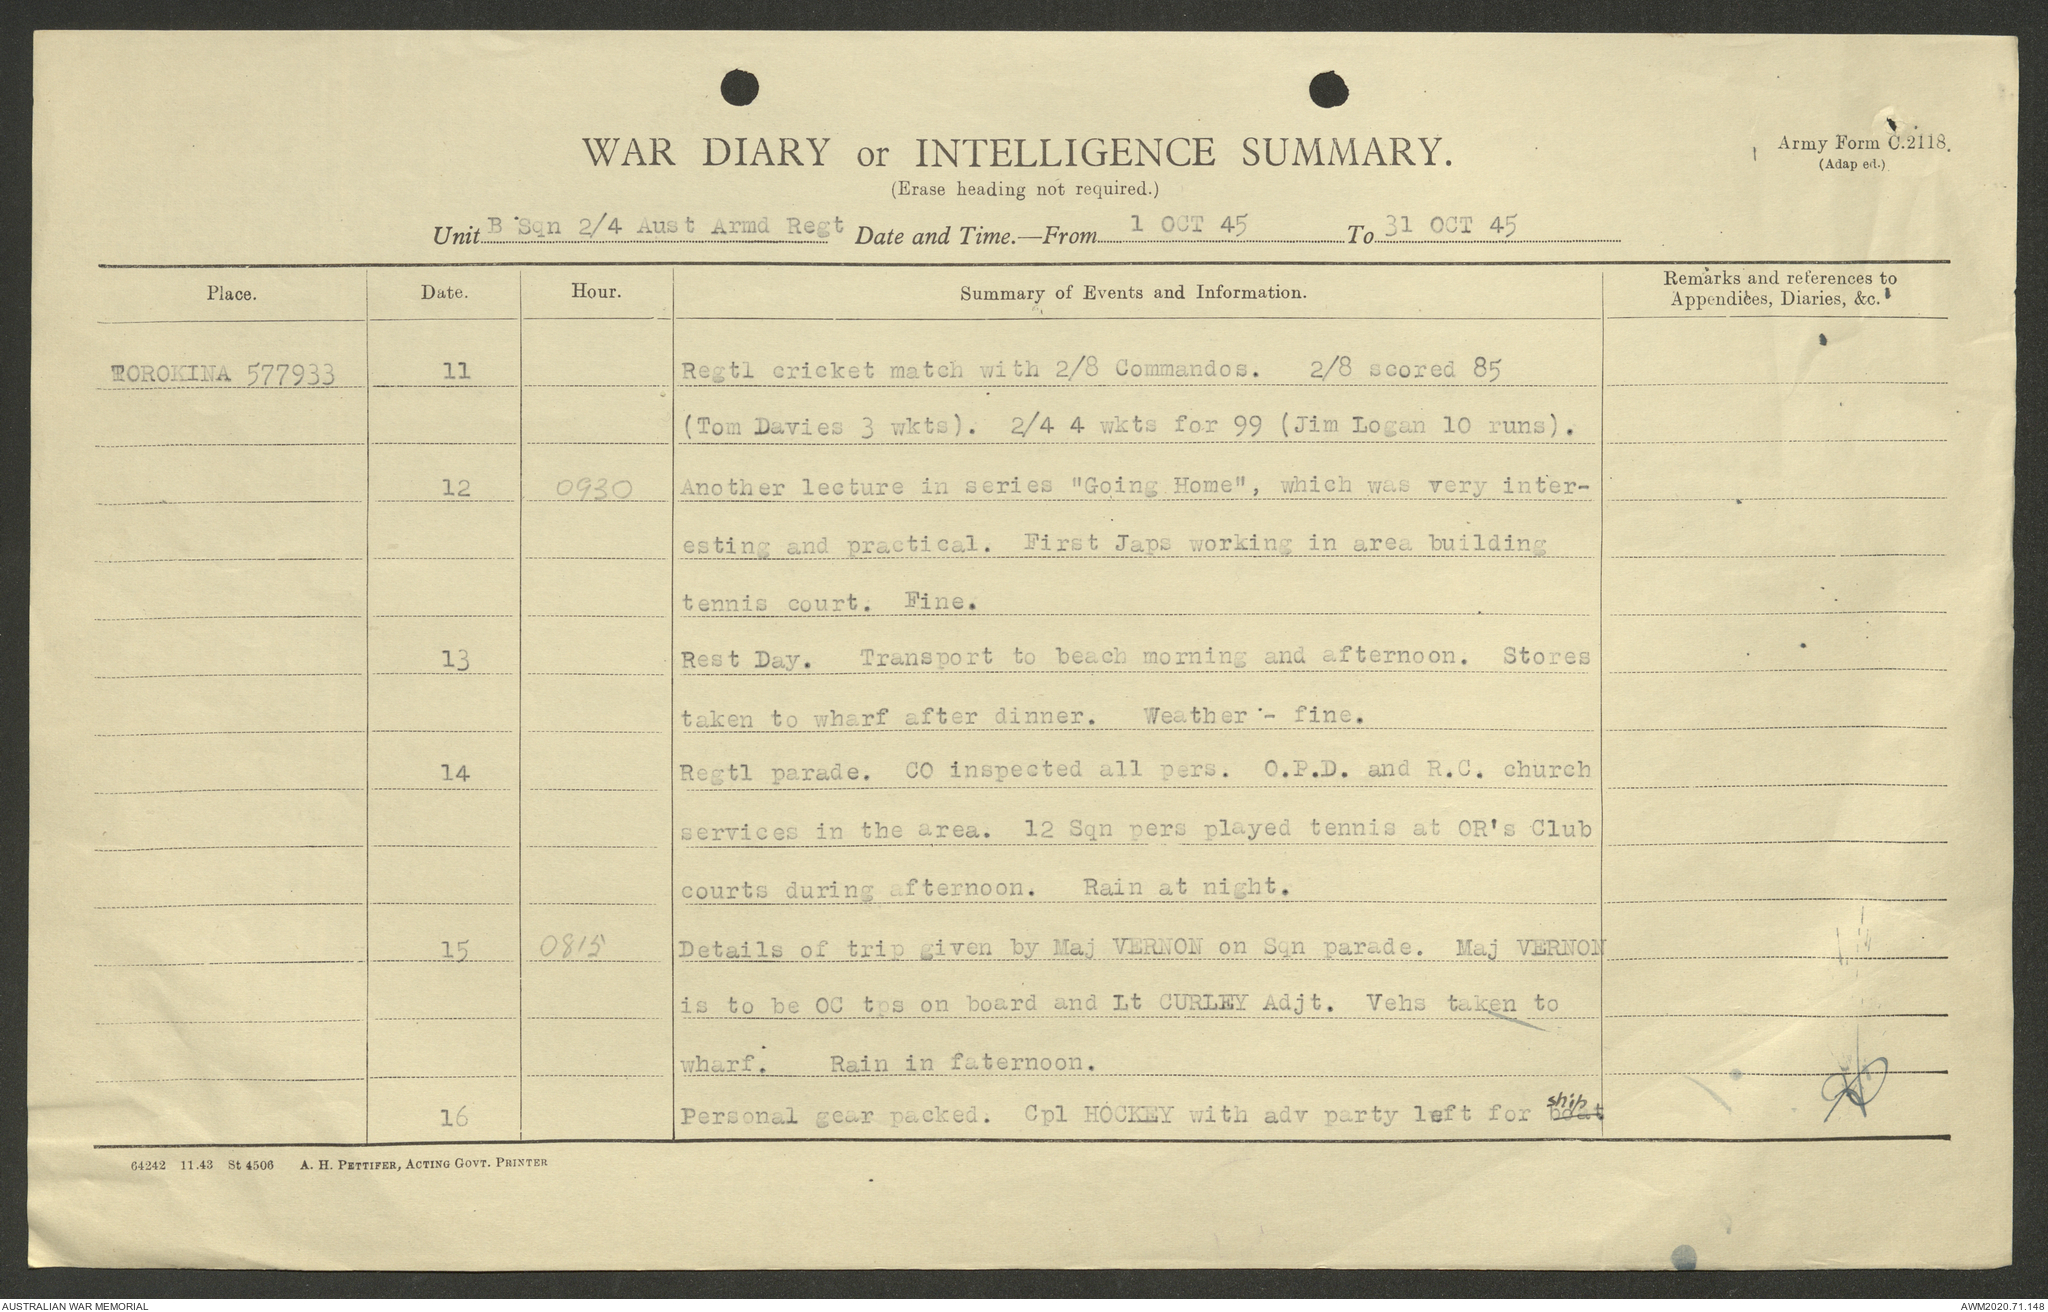 WAR DIARY or INTELLIGENCE SUMMARY.
Army Form C.2118.
(Adap ed.)
(Erase heading not required.)
Unit B Sqn 2/4 Aust Armd Regt Date and Time.—From 1 OCT 45 To 31 OCT 45
Place. Date. Hour. Summary of Events and Information. Remarks and references to Appendices, Diaries, &c.
TOROKINA 577933 11 Regtl cricket match with 2/8 Commandos. 2/8 scored 85
(Tom Davies 3 wkts). 2/4 4 wkts for 99 (Jim Logan 10 runs).
12 0930 Another lecture in series "Going Home", which was very inter-
esting and practical. First Japs working in area building
tennis court. Fine.
13 Rest Day. Transport to beach morning and afternoon. Stores
taken to wharf after dinner. Weather - fine.
14 Regtl parade. CO inspected all pers. O.P.D. and R.C. church
services in the area. 12 Sqn pers played tennis at OR's Club
courts during afternoon. Rain at night.
15 0815 Details of trip given by Maj VERNON on Sqn parade. Maj VERNON
is to be OC tps on board and Lt CURLEY Adjt. Vehs taken to
wharf. Rain in faternoon.
16 Personal gear packed. Cpl HOCKEY with adv party left for boat ship
64242 11.43 St 4506 A. H. PETTIFER, ACTING GOVT. PRINTER
AUSTRALIAN WAR MEMORIAL
AWM2020.71.148